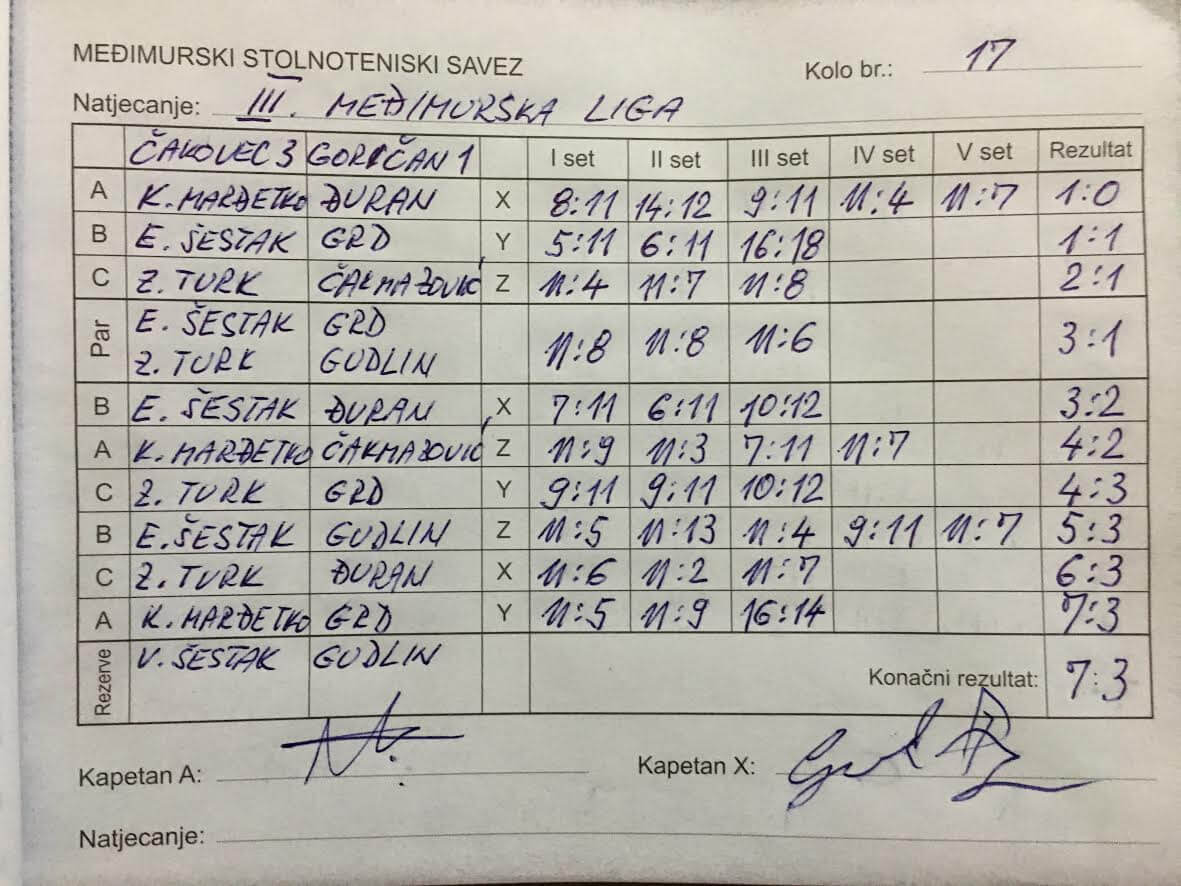 MEĐIMURSKI STOLNOTENISKI SAVEZ
Kolo br.: 17
Natjecanje: III. MEĐIMURSKA LIGA
ČAKOVEC 3 GORIČAN 1 I set II set III set IV set V set Rezultat
A K. MARĐETKO ĐURAN X 8:11 14:12 9:11 11:4 11:7 1:0
B E. ŠESTAK GRD Y 5:11 6:11 16:18 1:1
C Z. TURK ČAKMAZOVIĆ Z 11:4 11:7 11:8 2:1
Par E. ŠESTAK GRD
Z. TURK GUDLIN 11:8 11:8 11:6 3:1
B E. ŠESTAK ĐURAN X 7:11 6:11 10:12 3:2
A K. MARĐETKO ČAKMAZOVIĆ Z 11:9 11:3 7:11 11:7 4:2
C Z. TURK GRD Y 9:11 9:11 10:12 4:3
B E. ŠESTAK GUDLIN Z 11:5 11:13 11:4 9:11 11:7 5:3
C Z. TURK ĐURAN X 11:6 11:2 11:7 6:3
A K. MARĐETKO GRD Y 11:5 11:9 16:14 7:3
Rezerve V. ŠESTAK GUDLIN
Konačni rezultat: 7:3
Kapetan A:
Kapetan X:
Natjecanje: